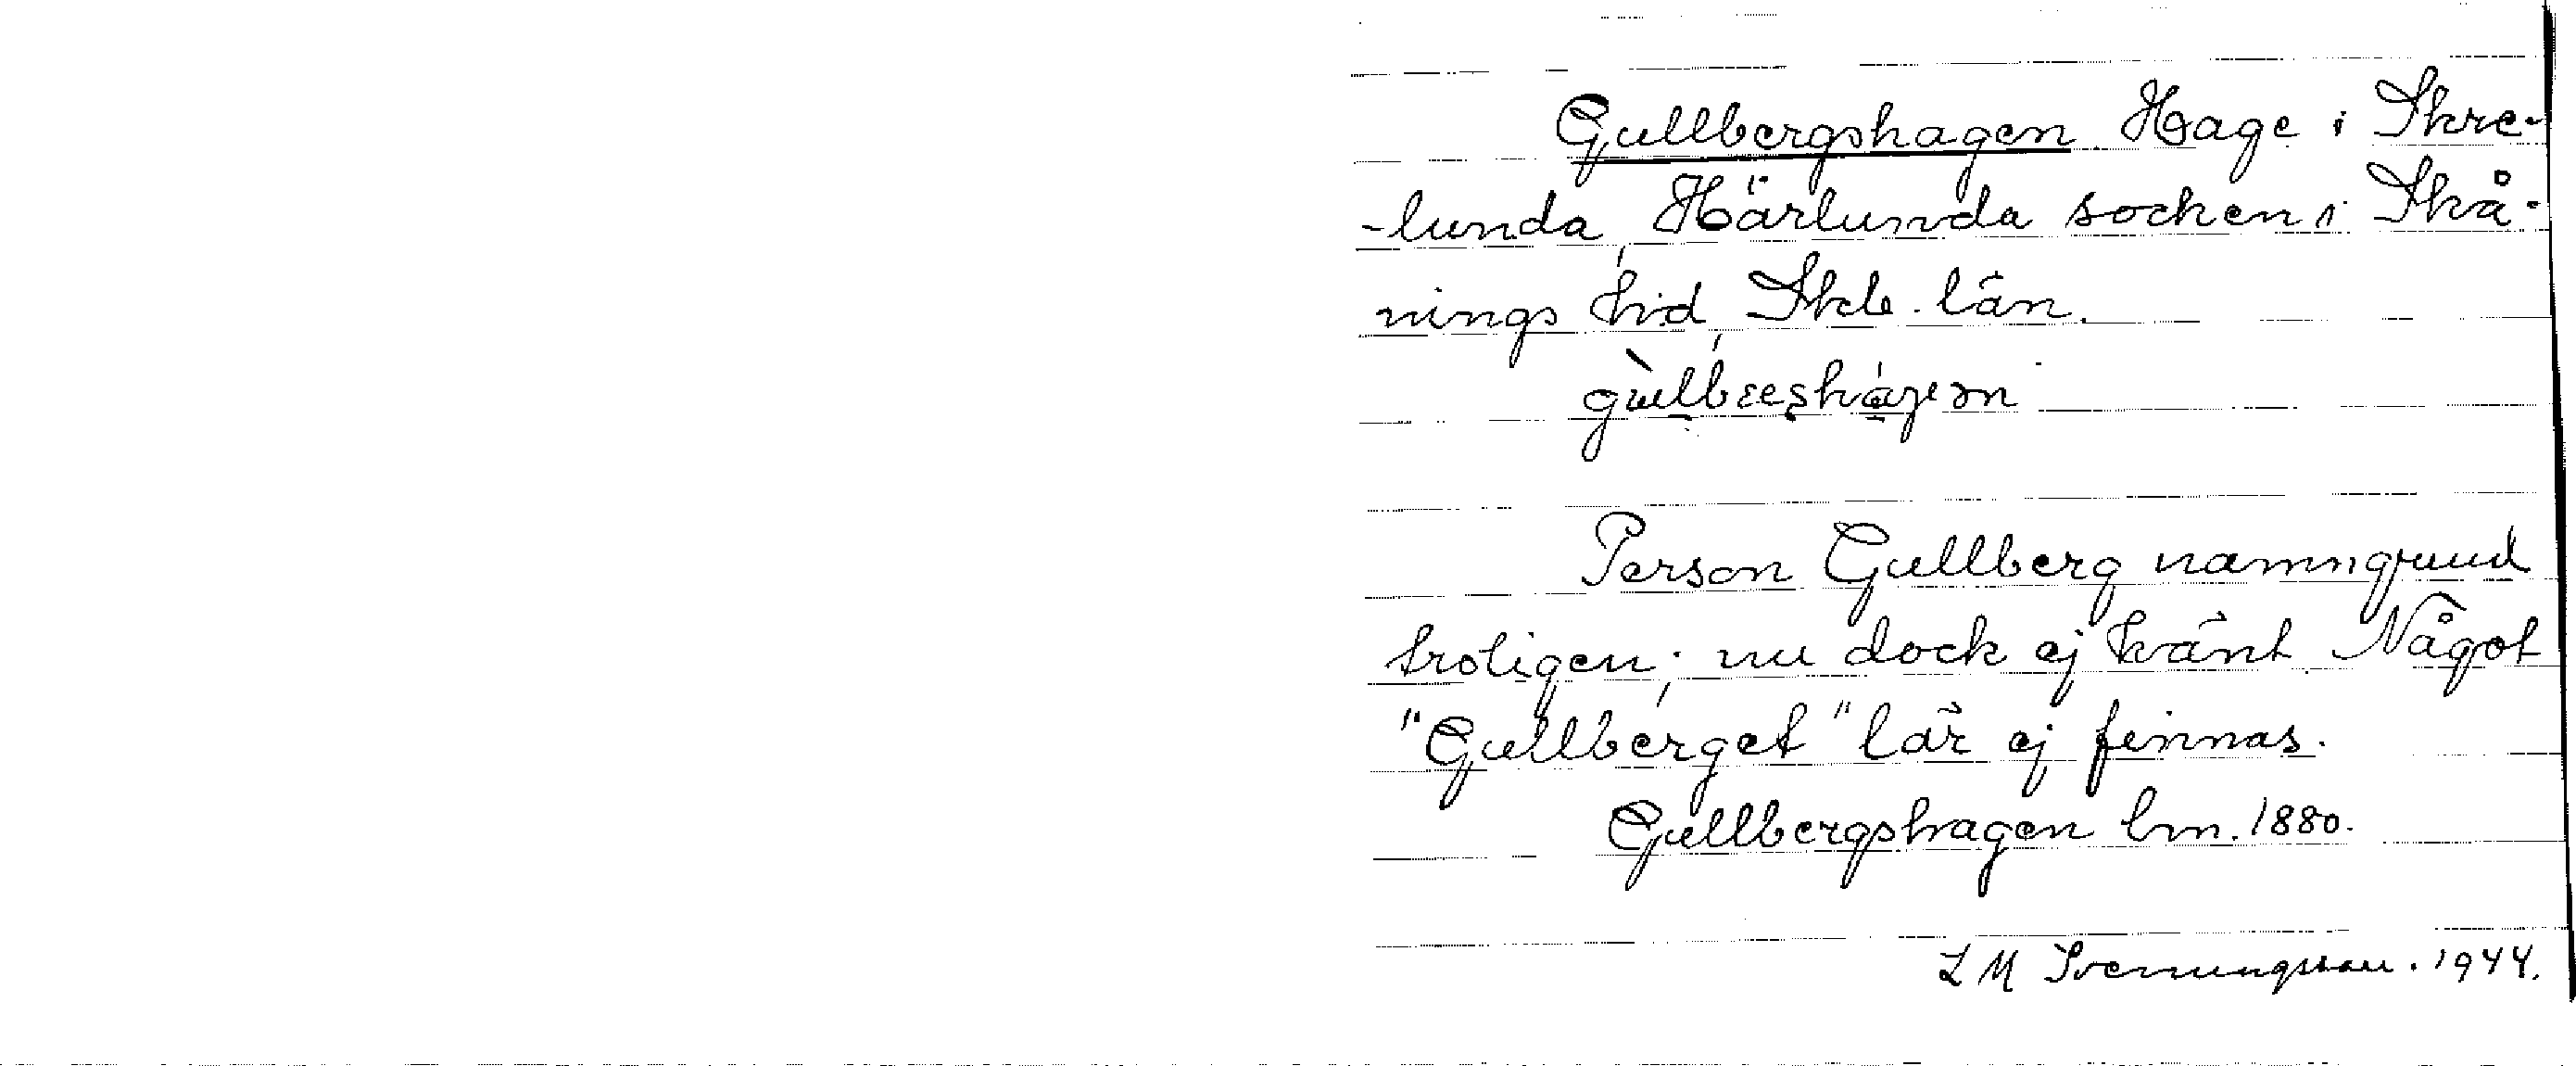 Gullbergshagen Hage i Skre-
-lunda, Härlunda socken i Skå-
nings hd, Skb. län.
Person Gullberg namngrund
troligen; nu dock ej känt. Något
"Gullberget" lär ej finnas.
Gullbergshagen lm. 1880.
L M Svenungsson. 1944.